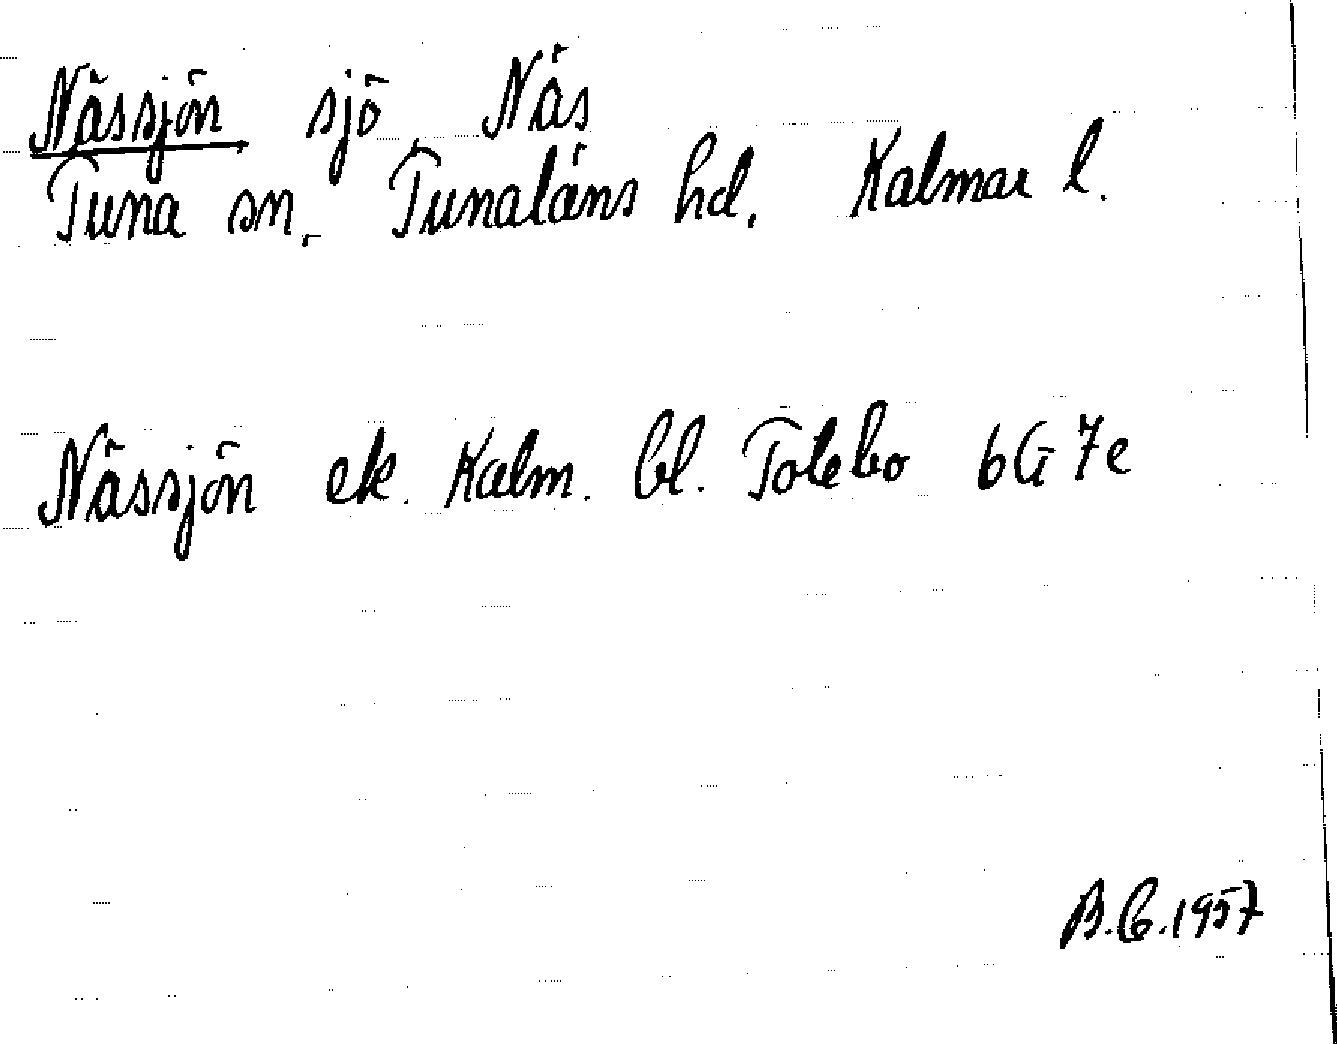 Nässjön sjö Näs
Tuna sn. Tunaläns hd. Kalmar l.
Nässjön ek. Kalm. bl. Totebo 6G 7e
B.C. 1957